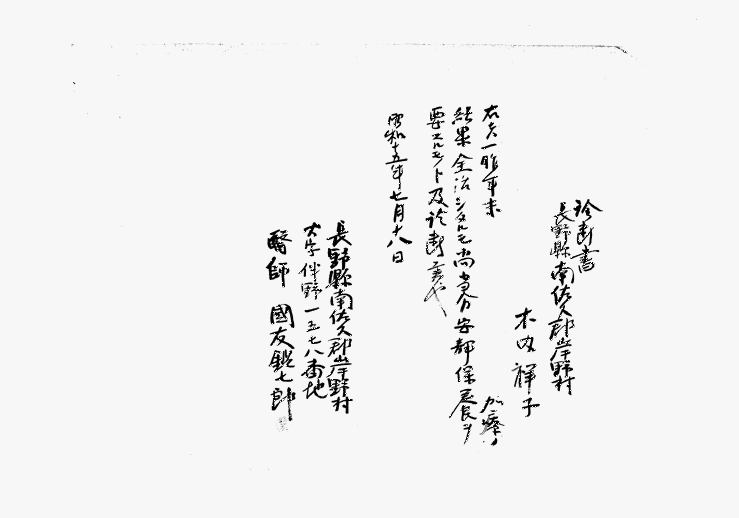 診断書
長野縣南佐久郡岸野村
木内祥子
右ハ一昨年末 加療ノ
結果全治シタルモ尚當分安静保養ヲ
要スルモノト及診断候也
昭和十五年七月十八日
長野縣南佐久郡岸野村
大字伴野一五七八番地
醫師 國友鑑七郎